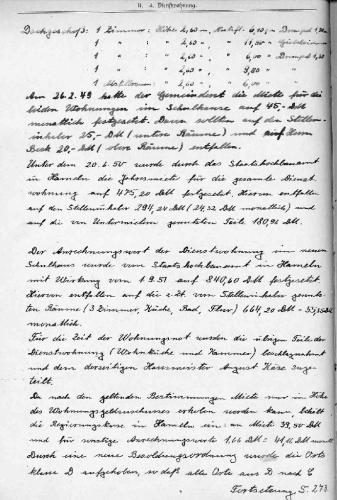 II. 4. Dienstwohnung.
Dachgeschoß: 1 Zimmer: Höhe 2,60 m, Nutzfl. 6,10 qm Drempel 1,30
1 " " 2,60 " " 11,50 "
1 " " 2,60 " " 6,00 " Drempel 1,30
1 " " 2,60 " " 9,80 "
1 " 2,60 " " 6,00 "
Am 26.2.49 hatte der Gemeinderat die Miete für die
beiden Wohnungen im Schulhause auf 45,- DM
monatlich festgesetzt. Davon sollten auf den Stellen-
inhaber 25,- DM (untere Räume) und auf Herrn
Beck 20,- DM (obere Räume) entfallen.
Unter dem 20.6.50 wurde durch das Staatshochbauamt
in Hameln die Jahresmiete für die gesamte Dienst-
wohnung auf 475,20 DM festgesetzt. Hiervon entfallen
auf den Stelleninhaber 294,24 DM (24,52 DM monatlich) und
auf die von Untermietern genutzten Teile 180,96 DM.
Der Anrechnungswert der Dienstwohnung im neuen
Schulhaus wurde vom Staatshochbauamt in Hameln
mit Wirkung vom 1.9.51 auf 840,60 DM festgesetzt.
Hiervon entfallen auf die z. Zt. vom Stelleninhaber genutz-
ten Räume (3 Zimmer, Küche, Bad, Flur) 664,20 DM = 55,35 DM
monatlich.
Für die Zeit der Wohnungsnot wurden die übrigen Teile der
Dienstwohnung (Wohnküche und Kammer) beschlagnahmt
und dem derzeitigen Hausmeister August Käse zuge-
teilt.
Da nach den geltenden Bestimmungen Miete nur in Höhe
des Wohnungsgeldzuschusses erhoben werden kann, behält
die Regierungskasse in Hameln ein: an Miete 39,50 DM
und für sonstige Anrechnungswerte 1,61 DM = 41,11 DM monatl.
Durch eine neue Besoldungsordnung wurde die Orts-
klasse D aufgehoben, so daß alle Orte aus D nach C
Fortsetzung S. 243